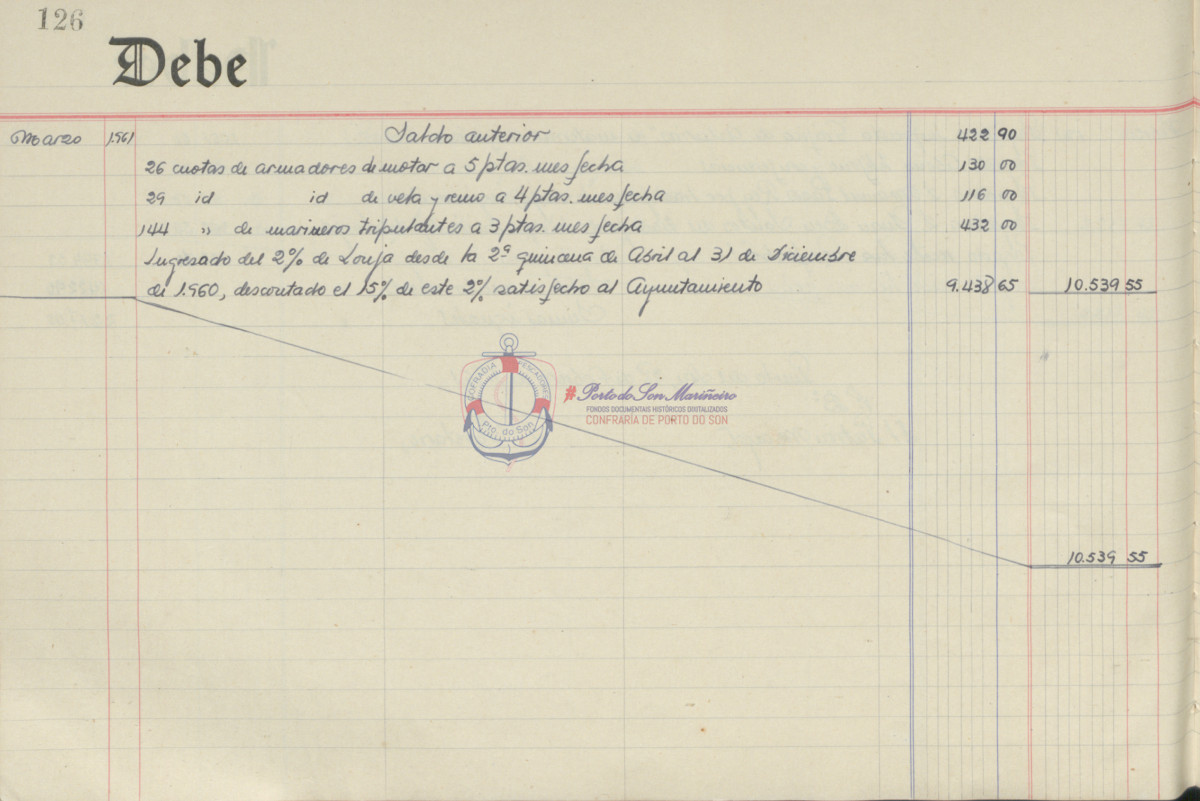 126
Debe
Marzo 1.961 Saldo anterior 422 90
26 cuotas de armadores de motor a 5 ptas. mes fecha 130 00
29 id id de vela y remo a 4 ptas. mes fecha 116 00
144 " de marineros tripulantes a 3 ptas. mes fecha 432 00
Ingresado del 2% de Lonja desde la 2ª quincena de Abril al 31 de Diciembre
de 1.960, descontado el 15% de este 2% satisfecho al Ayuntamiento 9.438 65 10.539 55
COFRADIA PESCADORES
Pto. do Son
#Porto do Son Mariñeiro
FONDOS DOCUMENTAIS HISTÓRICOS DIXITALIZADOS
CONFRARÍA DE PORTO DO SON
10.539 55